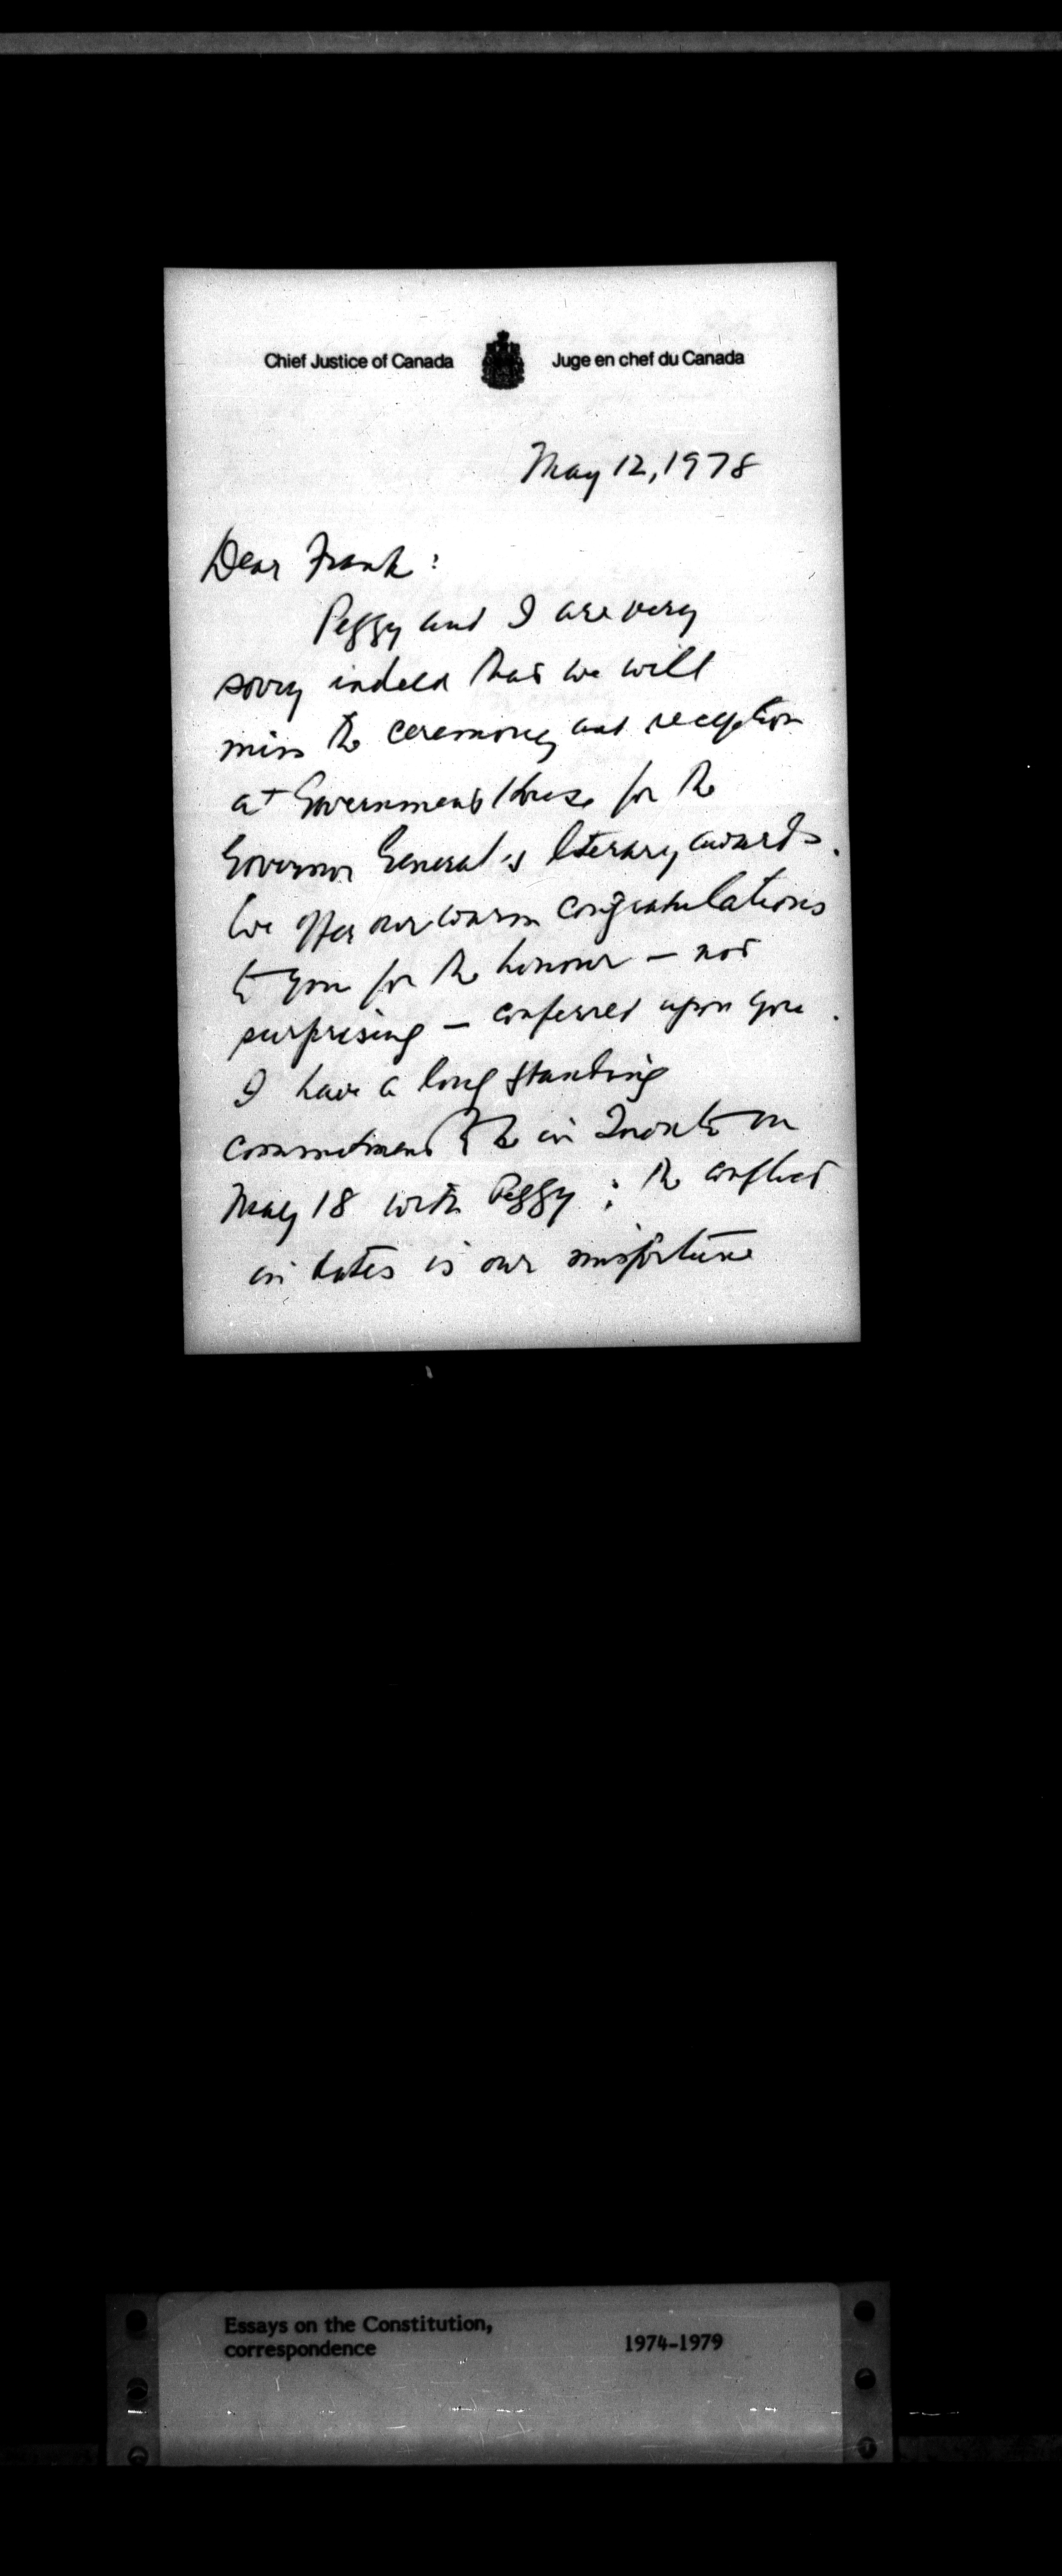 Chief Justice of Canada Juge en chef du Canada
May 12, 1978
Dear Frank:
Peggy and I are very
sorry indeed that we will
miss the ceremony and reception
at Government House for the
Governor General's literary awards.
We offer our warm congratulations
to you for the honour – not
surprising – conferred upon you.
I have a long standing
commitment to be in Toronto on
May 18 with Peggy; the conflict
in dates is our misfortune
Essays on the Constitution,
correspondence 1974-1979